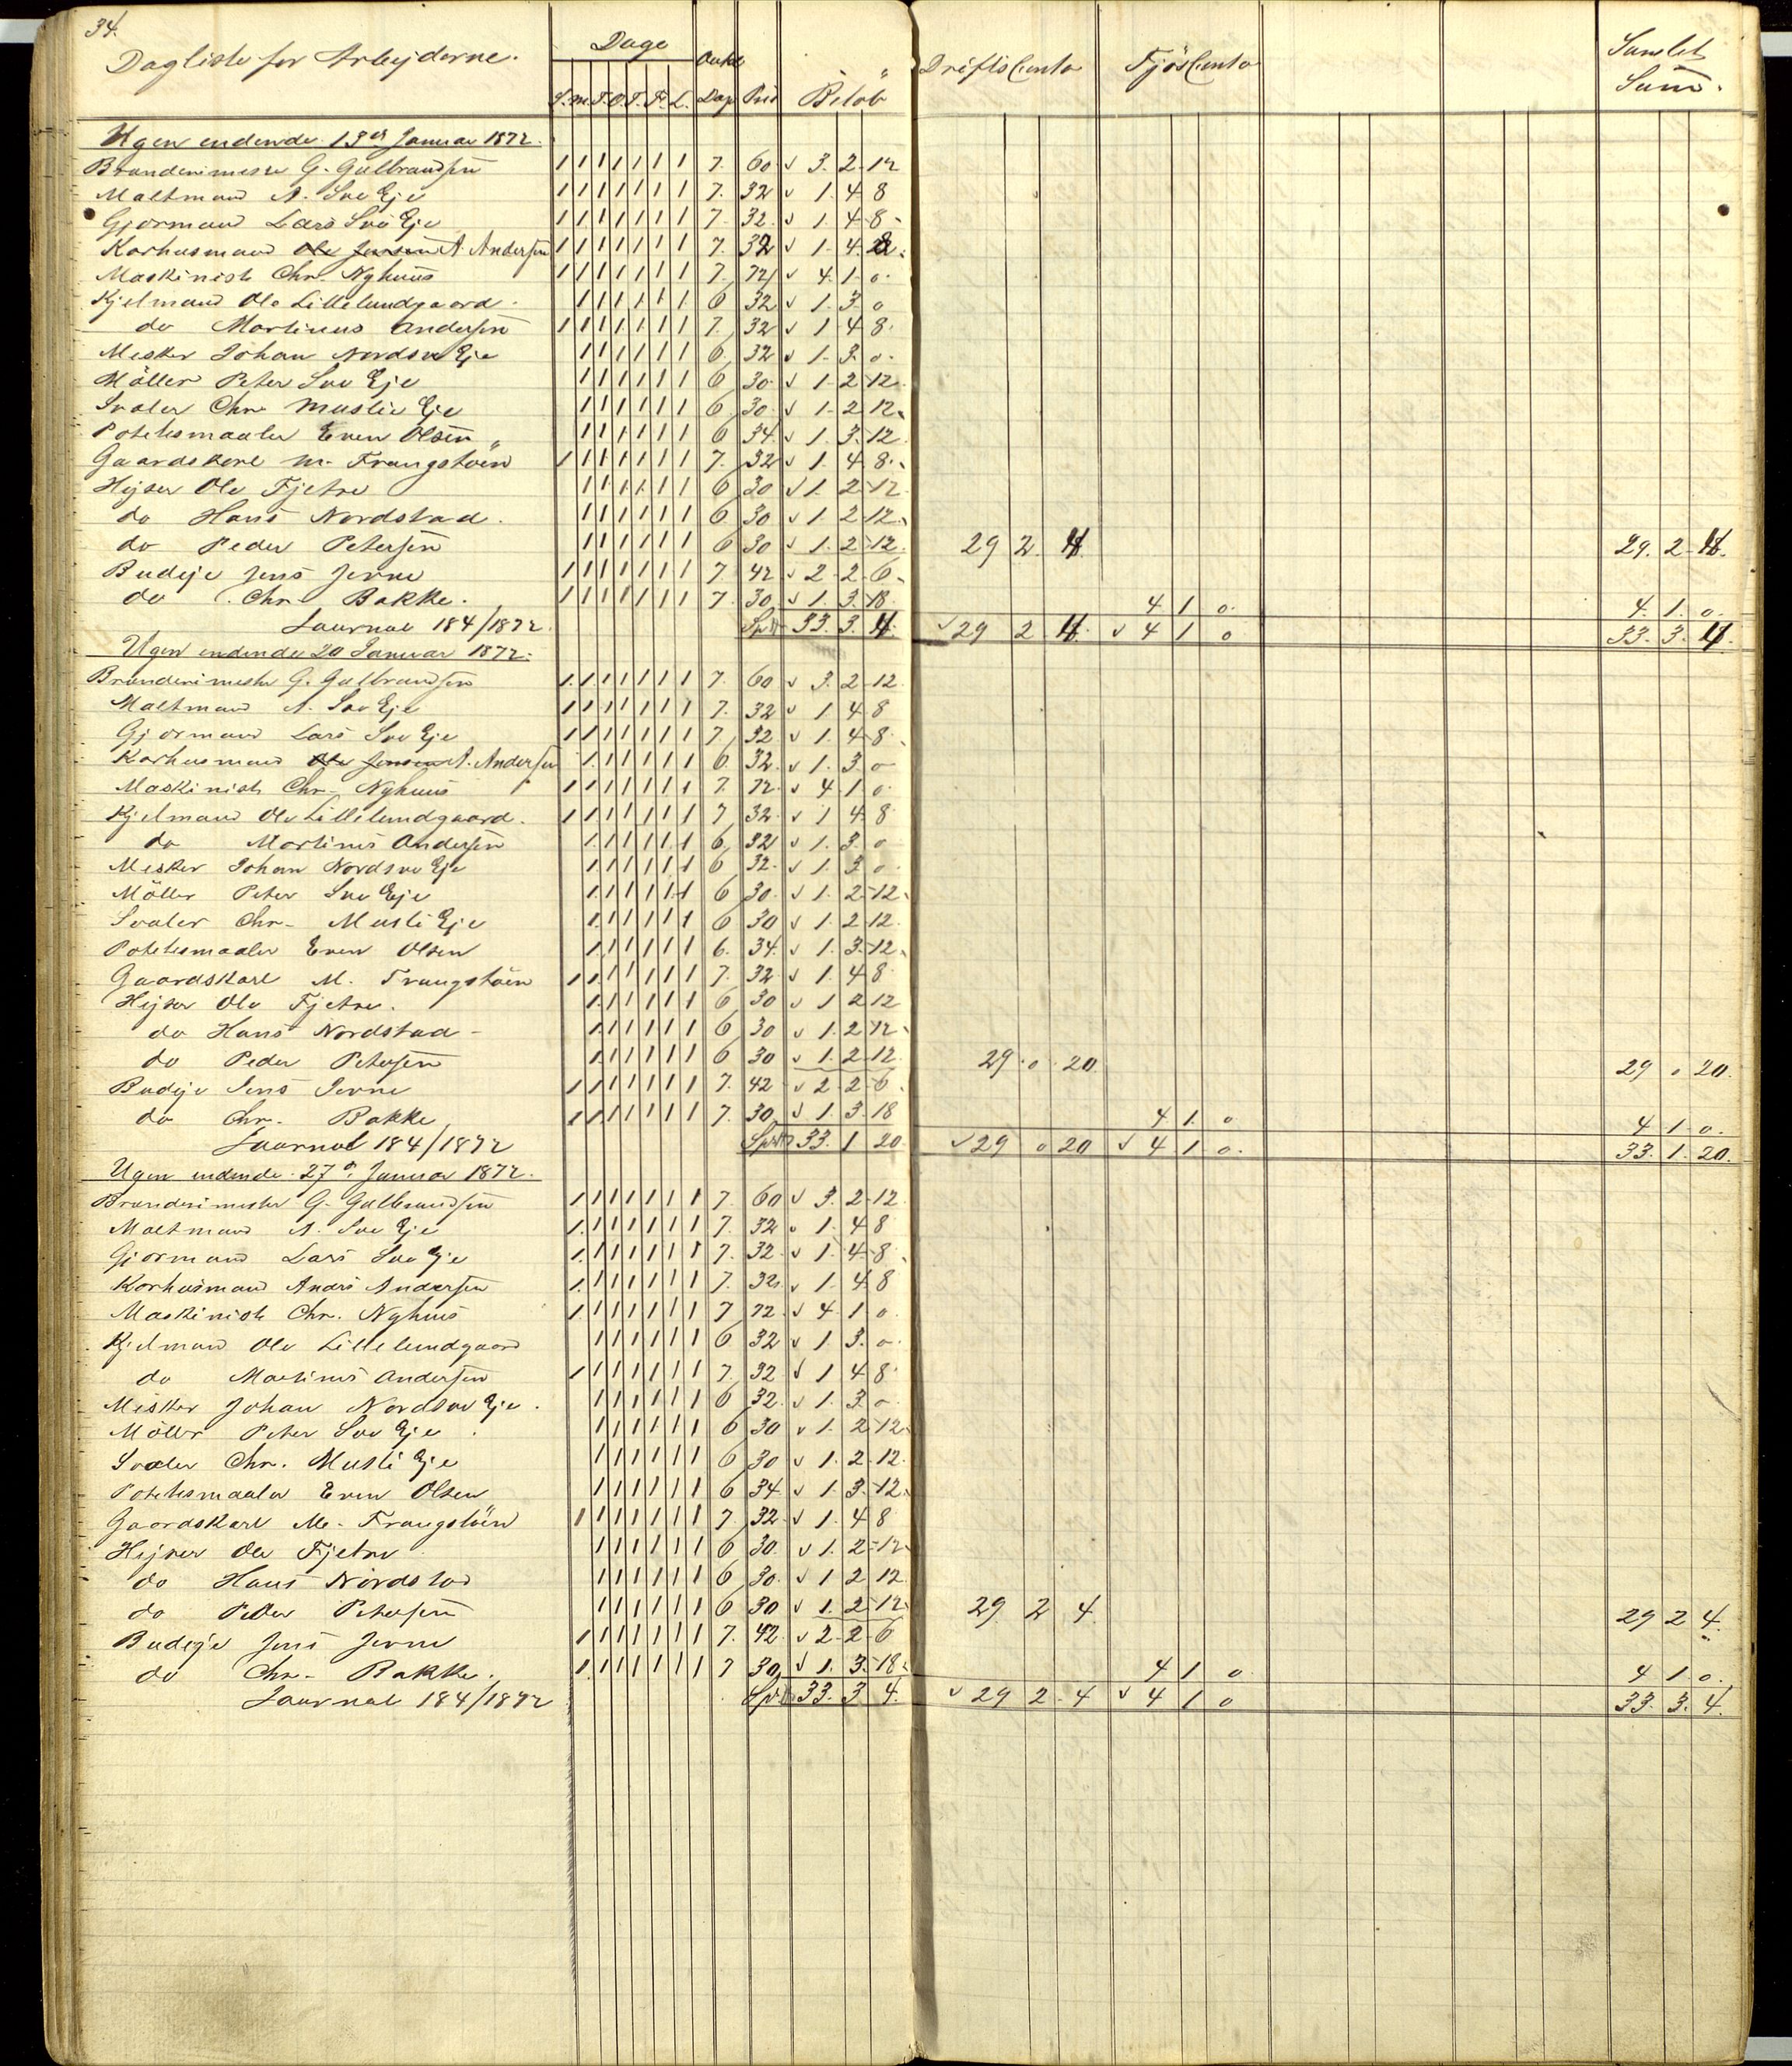 34.
Dagliste for Arbejderne. Dage Antal Driftsconto Fjösconto Samlet
S. M. T. O. T. Fr. L. Dage Pris Beløb Sum.
Ugen endende 13de Januar 1872.
Brænderimester G. Gulbrandsen 1 1 1 1 1 1 1 7. 60 3. 2. 12
Maltmand A. Sve Eje 1 1 1 1 1 1 1 7. 32 1. 4. 8
Gjørmand Lars Sve Eje 1 1 1 1 1 1 1 7. 32. 1. 4. 8
Karhusmand Ole Jensen A. Andersen 1 1 1 1 1 1 1 7. 32 1. 4. 8
Maskinist Chr. Nyhuus 1 1 1 1 1 1 1 7. 72 4. 1. 0.
Kjelmand Ole Lillelundgaard. 1 1 1 1 1 1 6 32 1. 3. 0
do Martinus Andersen 1 1 1 1 1 1 1 7. 32 1. 4. 8.
Mesker Johan Nordsve Eje 1 1 1 1 1 1 6. 32 1. 3. 0.
Möller Peter Sve Eje 1 1 1 1 1 1 6 30. 1. 2. 12.
Svaler Chr. Musli Eje 1 1 1 1 1 1 6 30. 1. 2. 12.
Potetesmaaler Even Olsen 1 1 1 1 1 1 6 34. 1. 3. 12.
Gaardskarl M. Frangstöen 1 1 1 1 1 1 1 7. 32 1. 4. 8.
Hejser Ole Fjetre 1 1 1 1 1 1 6 30 1. 2. 12.
do Hans Nordstad. 1 1 1 1 1 1 6 30 1. 2. 12.
do Peder Petersen 1 1 1 1 1 1 6 30 1. 2. 12. 29 2. 4 29. 2. 4.
Budeje Jens Jerne 1 1 1 1 1 1 1 7 42 2. 2. 6.
do Chr. Bakke. 1 1 1 1 1 1 1 7. 30 1. 3. 18. 4 1 0. 4. 1. 0.
Journal 184/1872. Spd 33. 3. 4. 29 2 4. 4 1 0 33. 3. 4.
Ugen endende 20 Januar 1872.
Brænderimester G. Gulbrandsen 1 1 1 1 1 1 1 7. 60 3. 2. 12.
Maltmand A. Sve Eje 1 1 1 1 1 1 1 7. 32 1. 4. 8
Gjørmand Lars Sve Eje 1 1 1 1 1 1 1 7. 32 1. 4. 8.
Karhusmand Ole Jensen A. Andersen 1 1 1 1 1 1 6. 32. 1. 3. 0
Maskinist Chr. Nyhuus 1 1 1 1 1 1 1 7. 72. 4. 1. 0.
Kjelmand Ole Lillelundgaard. 1 1 1 1 1 1 1 7 32 1 4. 8
do Martinus Andersen 1 1 1 1 1 1 6 32 1. 3. 0
Mesker Johan Nordsve Eje 1 1 1 1 1 1 6 32. 1. 3. 0.
Möller Peter Sve Eje 1 1 1 1 1 1 6 30. 1. 2. 12.
Svaler Chr. Musli Eje 1 1 1 1 1 1 6 30 1. 2. 12.
Potetesmaaler Even Olsen 1 1 1 1 1 1 6. 34. 1. 3. 12.
Gaardskarl M. Frangstöen 1 1 1 1 1 1 1 7. 32 1. 4. 8
Hejser Ole Fjetre. 1 1 1 1 1 1 6 30 1 2 12
do Hans Nordstad 1 1 1 1 1 1 6 30 1. 2. 12.
do Peder Petersen 1 1 1 1 1 1 6 30 1. 2. 12. 29. 0. 20. 29 0 20.
Budeje Jens Jerne 1 1 1 1 1 1 1 7. 42 2. 2. 6.
do Chr. Bakke 1 1 1 1 1 1 1 7. 30 1. 3. 18 4 1. 0 4 1. 0.
Journal 184/1872 Spd 33. 1 20 29 0 20 4 1 0. 33. 1. 20.
Ugen endende 27de Januar 1872.
Brænderimester G. Gulbrandsen 1 1 1 1 1 1 1 7. 60 3. 2. 12.
Maltmand A. Sve Eje 1 1 1 1 1 1 1 7. 32 1. 4. 8
Gjørmand Lars Sve Eje 1 1 1 1 1 1 1 7. 32 1. 4. 8.
Karhusmand Andrs Andersen 1 1 1 1 1 1 1 7. 32. 1. 4. 8
Maskinist Chr. Nyhuus 1 1 1 1 1 1 1 7 72 4. 1. 0.
Kjelmand Ole Lillelundgaard 1 1 1 1 1 1 6 32 1. 3. 0.
do Martinus Andersen 1 1 1 1 1 1 1 7. 32 1 4 8.
Mesker Johan Nordsve Eje. 1 1 1 1 1 1 6 32. 1. 3. 0.
Möller Peter Sve Eje 1 1 1 1 1 1 6 30 1. 2. 12.
Svaler Chr. Musli Eje 1 1 1 1 1 1 6 30 1. 2. 12.
Potetesmaaler Even Olsen 1 1 1 1 1 1 6 34. 1. 3. 12.
Gaardskarl M. Frangstöen 1 1 1 1 1 1 1 7. 32. 1. 4. 8
Hejser Ole Fjetre 1 1 1 1 1 1 6 30. 1. 2. 12.
do Hans Nordstad 1 1 1 1 1 1 6 30. 1 2 12.
do Peder Petersen 1 1 1 1 1 1 6 30 1. 2. 12. 29 2 4 29 2 4.
Budeje Jens Jerne 1 1 1 1 1 1 1 7. 42. 2. 2. 6
do Chr. Bakke. 1 1 1 1 1 1 1 7 30 1. 3. 18. 4 1 0 4 1 0.
Journal 184/1872 Spd 33. 3 4. 29 2. 4 4 1 0 33. 3. 4.